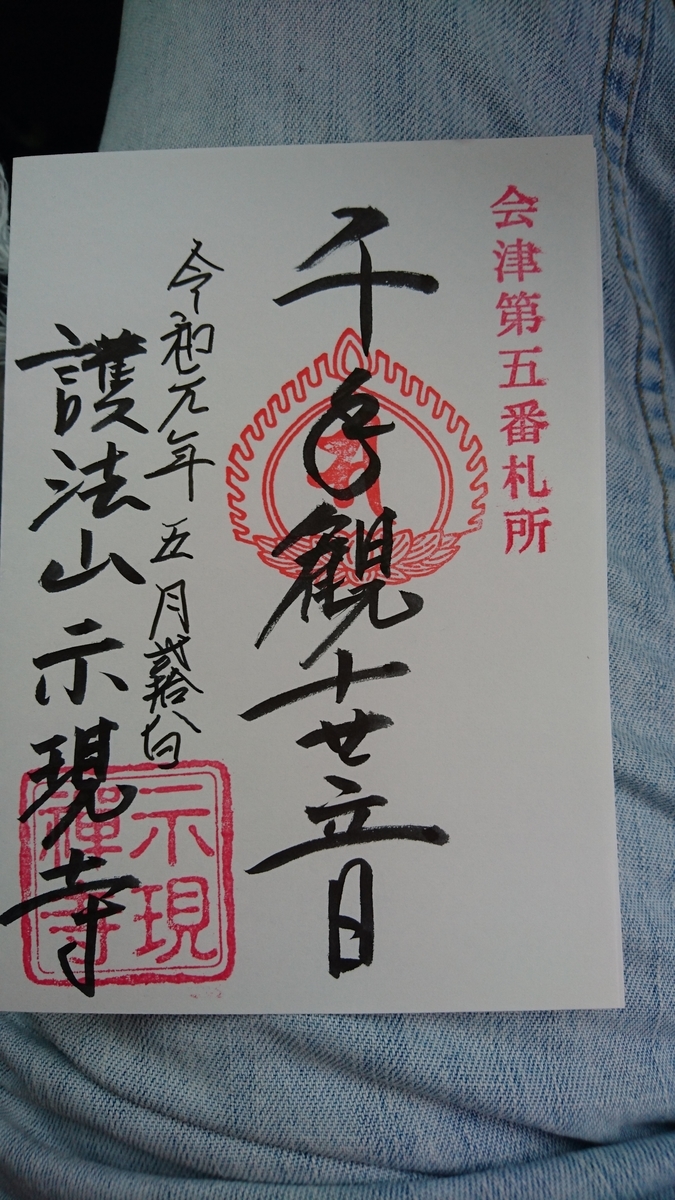 会津第五番札所
千手観世音
令和元年五月弐拾八日
護法山示現寺
示現
禪寺